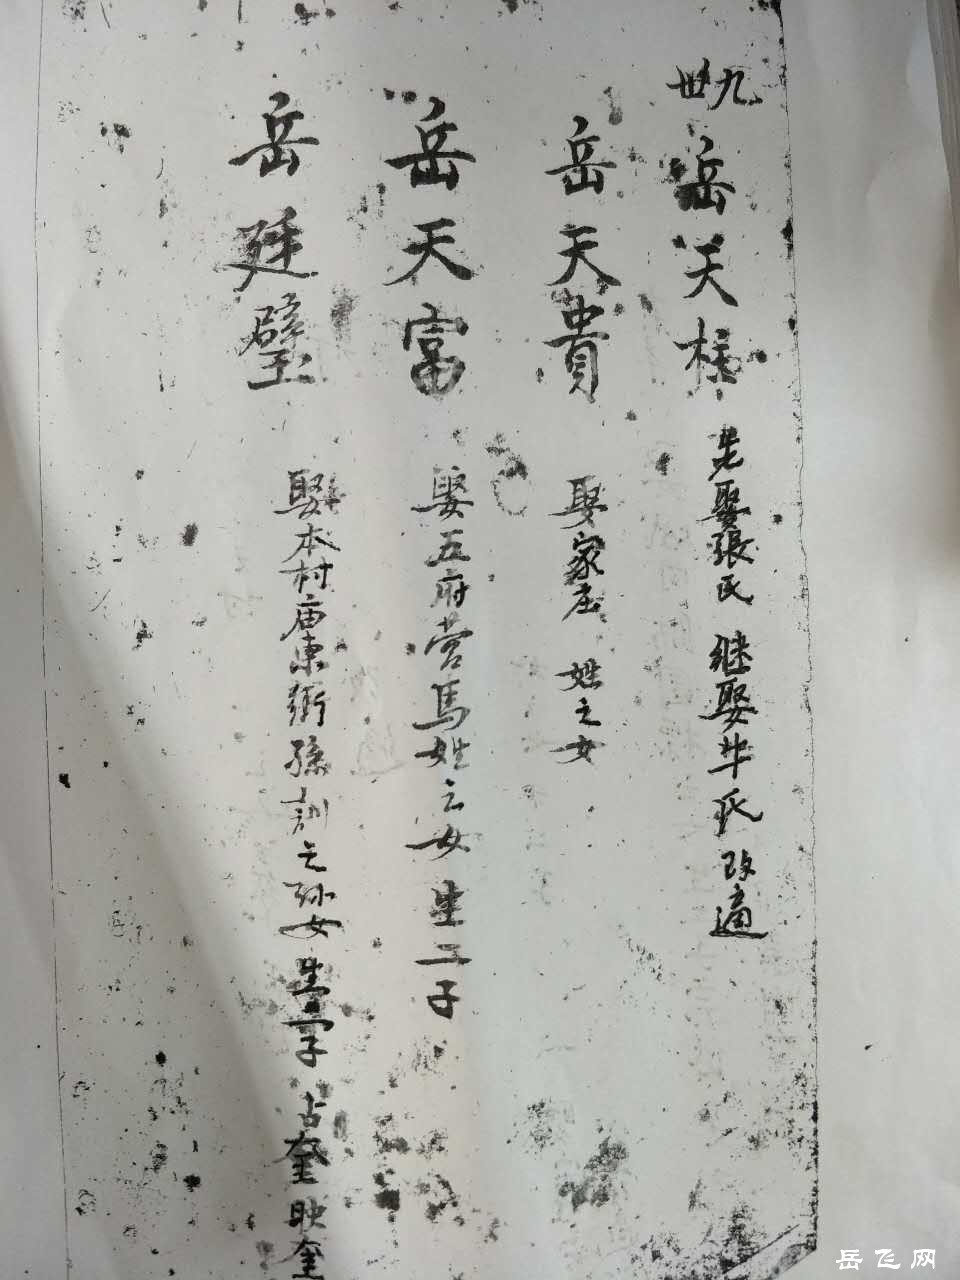 九世
岳天様 先娶張氏 继娶牛氏 改適
岳天貴 娶家庄 姓之女
岳天富 娶五府营馬姓之女 生二子
岳廷璧 娶本村庙東街孫訓之孙女 生二子 占奎 映奎
岳飞网